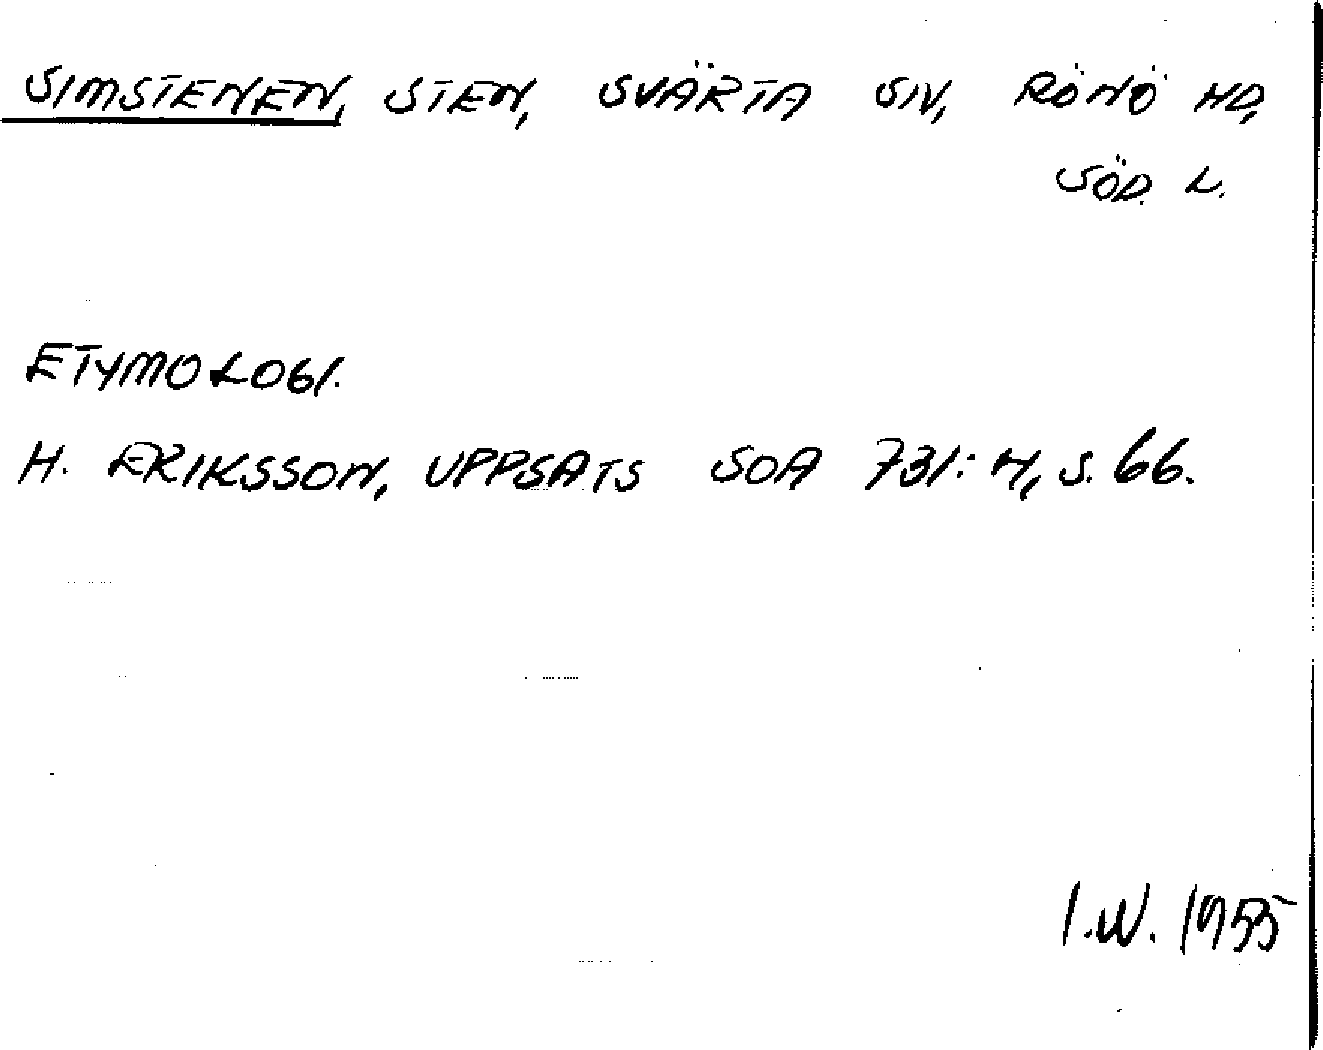 SIMSTENEN, STEN, SVÄRTA SN, RÖNÖ HD,
SÖD. L.
ETYMOLOGI.
H. ERIKSSON, UPPSATS SOA 731: H, S. 66.
I.W. 1955